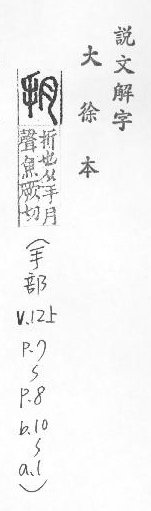 說文解字
大徐本
抈
折也从手月
聲魚厥切
(手部
v.12上
p.7
~
p.8
b.10
~
a.1)